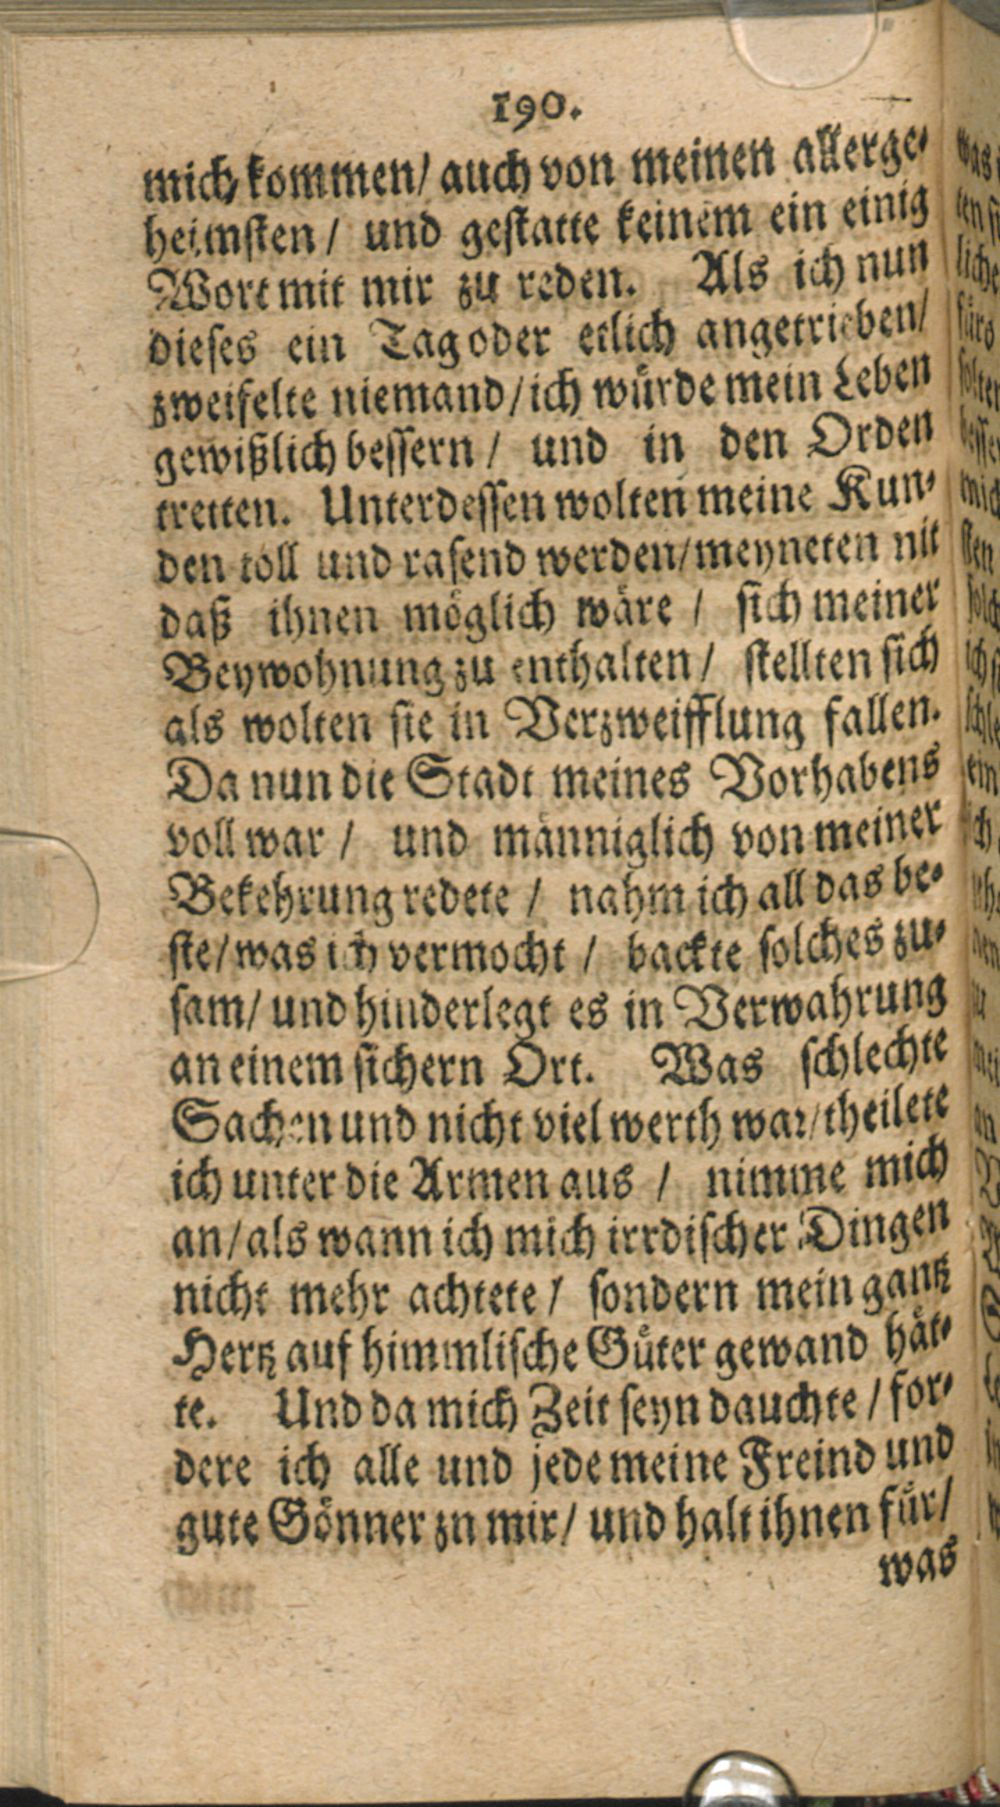 190.
mich kommen/ auch von meinen allerge-
heimsten / und gestatte keinem ein einig
Wort mit mir zu reden. Als ich nun
dieses ein Tag oder etlich angetrieben/
zweifelte niemand/ich würde mein Leben
gewißlich bessern / und in den Orden
tretten. Unterdessen wolten meine Kun-
den toll und rasend werden/meyneten nit
daß ihnen möglich wäre / sich meiner
Beywohnung zu enthalten / stellten sich
als wolten sie in Verzweifflung fallen.
Da nun die Stadt meines Vorhabens
voll war / und männiglich von meiner
Bekehrung redete / nahm ich all das be-
ste/was ich vermocht / backte solches zu-
sam/ und hinderlegt es in Verwahrung
an einem sichern Ort. Was schlechte
Sachen und nicht viel werth war/theilete
ich unter die Armen aus / nimme mich
an/als wann ich mich irrdischer Dingen
nicht mehr achtete / sondern mein gantz
Hertz auf himmlische Güter gewand hät-
te. Und da mich Zeit seyn dauchte / for-
dere ich alle und jede meine Freind und
gute Gönner zn mir/ und halt ihnen für/
was